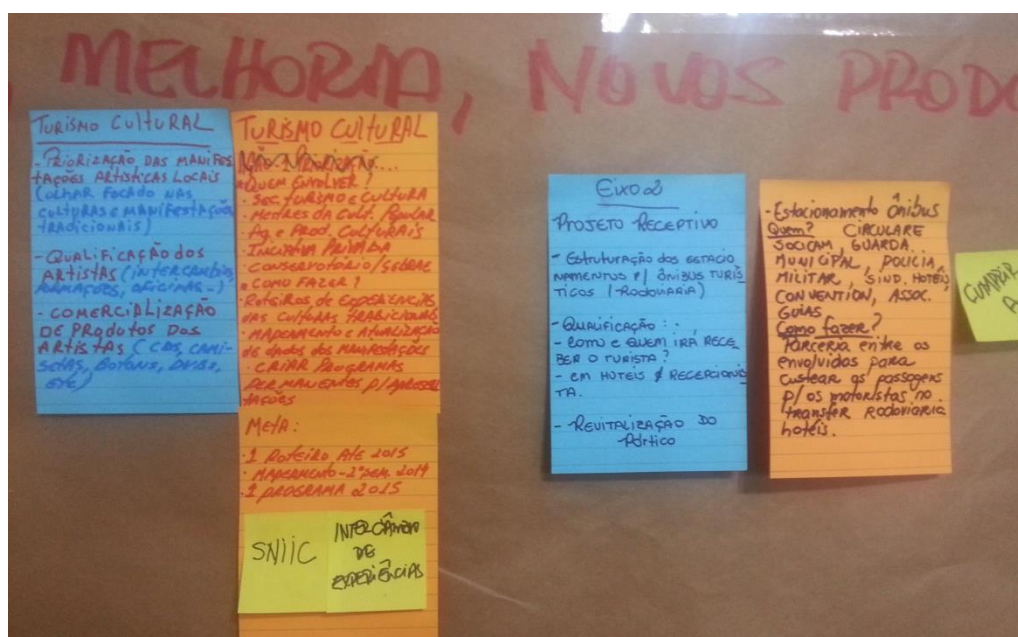 MELHORIA, NOVOS PROD
TURISMO CULTURAL
- PRIORIZAÇÃO DAS MANIFES
TAÇÕES ARTISTICAS LOCAIS
(OLHAR FOCADO NAS
CULTURAS E MANIFESTAÇÕES
TRADICIONAIS)
- QUALIFICAÇÃO DOS
ARTISTAS (INTERCAMBIOS,
FORMAÇÕES, OFICINAS...)
- COMERCIALIZAÇÃO
DE PRODUTOS DOS
ARTISTAS (CDS, CAMI-
SETAS, BOTONS, DVDS,
ETC)
TURISMO CULTURAL
QUEM ENVOLVER?
- SEC. TURISMO E CULTURA
- MESTRES DA CULT. POPULAR
- AG. E PROD. CULTURAIS
- INICIATIVA PRIVADA
- CONSERVATÓRIO/SEBRAE
COMO FAZER?
- ROTEIROS DE EXPERIENCIAS
DAS CULTURAS TRADICIONAIS
- MAPEAMENTO E ATUALIZAÇÃO
DE DADOS DAS MANIFESTAÇÕES
- CRIAR PROGRAMAS
PERMANENTES P/ APRESEN
TAÇÕES
META:
- 1 ROTEIRO ATE 2015
- MAPEAMENTO - 2º SEM. 2014
- 1 PROGRAMA 2015
SNIIC
INTERCÂMBIO
DE
EXPERIÊNCIAS
EIXO 2
PROJETO RECEPTIVO
- ESTRUTURAÇÃO DOS ESTACIO
NAMENTOS P/ ÔNIBUS TURÍS
TICOS (-RODOVIARIA)
- QUALIFICAÇÃO:
- COMO E QUEM IRÁ RECE
BER O TURISTA?
- EM HOTEIS RECEPCIONIS
TA.
- REVITALIZAÇÃO DO
PÓRTICO
- Estacionamento ônibus
Quem? CIRCULARE
SOCICAM, GUARDA
MUNICIPAL, POLICIA
MILITAR, SIND. HOTÉIS,
CONVENTION, ASSOC.
GUIAS
Como fazer?
PARCERIA entre os
envolvidos para
custear as passagens
p/ os motoristas no
transfer RODOVIARIA
hotéis.
CUMPRIR
A